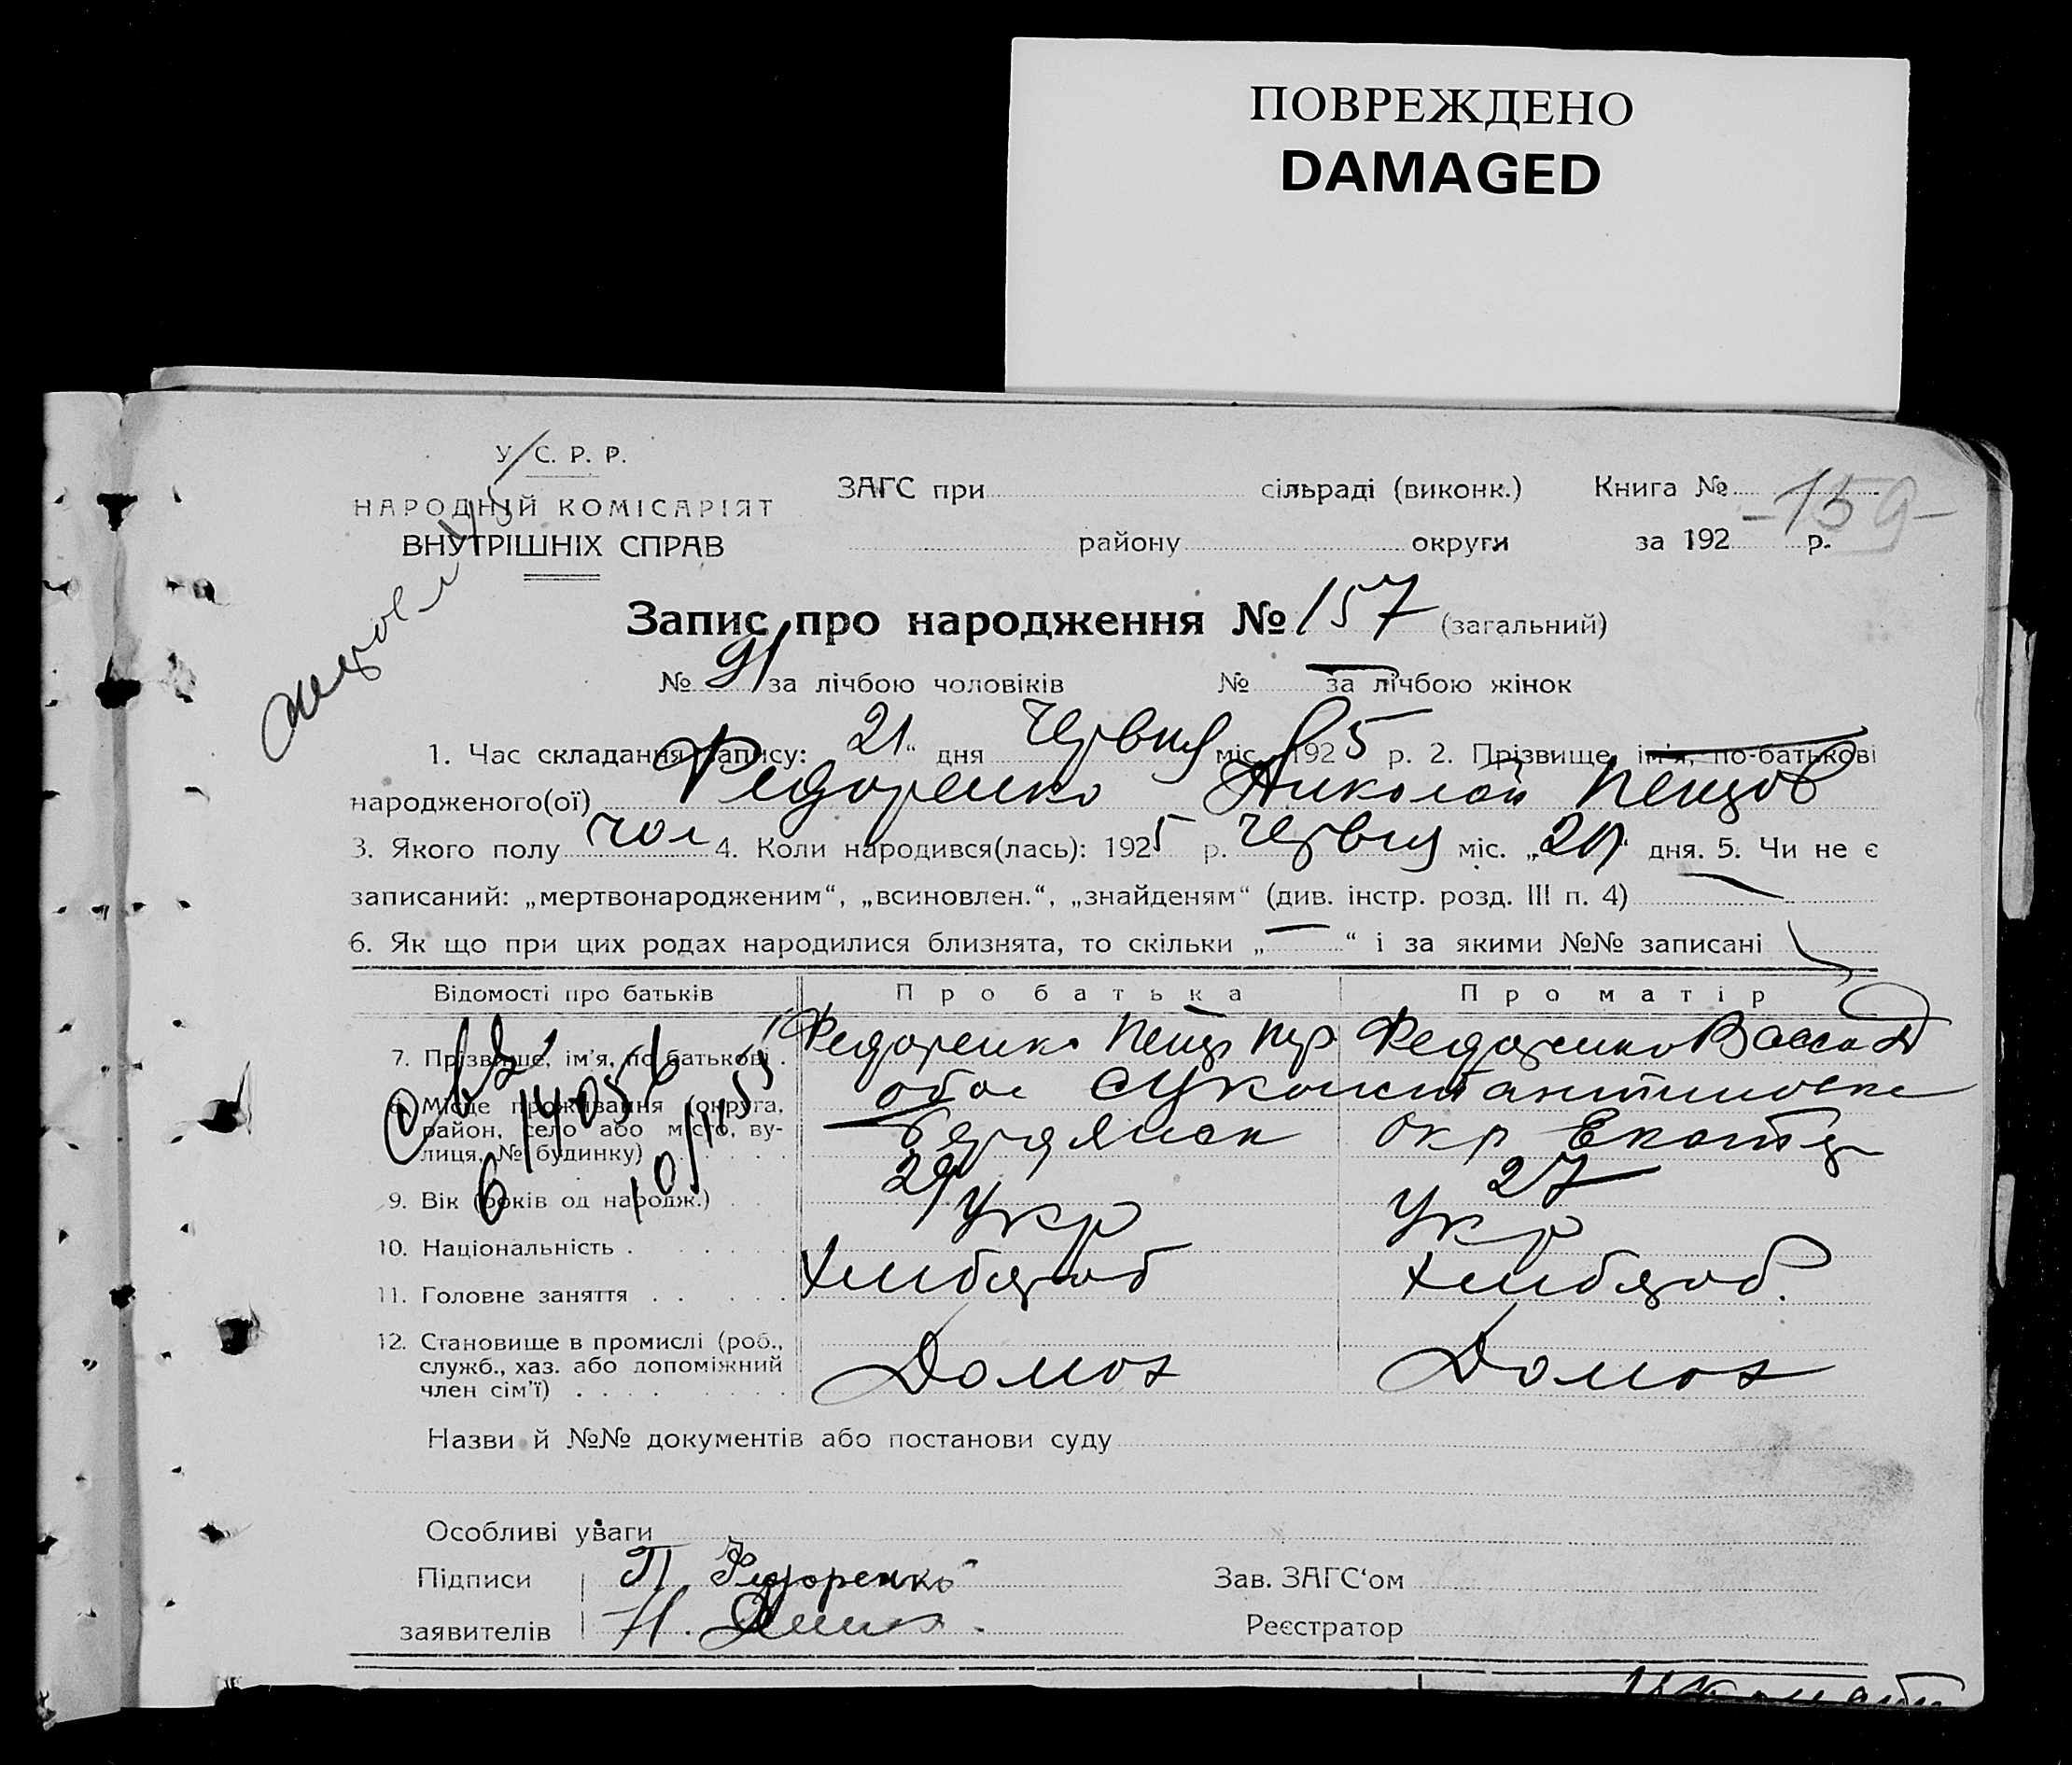 ПОВРЕЖДЕНО
DAMAGED
У. С. Р. Р.
НАРОДНІЙ КОМІСАРІЯТ
ВНУТРІШНІХ СПРАВ
ЗАГС при сільраді (виконк.) Книга №
району округи за 192 р.
-159-
Запис про народження № 157 (загальний)
№ 91 за лічбою чоловіків № — за лічбою жінок
1. Час складання запису: 21 " дня Червня міс. 1925 р. 2. Прізвище, ім'я, по-батькові
народженого(ої) Федоренко Николай
3. Якого полу чол 4. Коли народився(лась): 1925 р. Червня міс. „20" дня. 5. Чи не є
записаний: „мертвонародженим“, „всиновлен.“, „знайденям“ (див. інстр. розд. III п. 4)
6. Як що при цих родах народилися близнята, то скільки „—“ і за якими №№ записані
Відомості про батьків Про батька Про матір
7. Прізвище, ім'я, по батькові . Федоренко Федоренко
8. Місце проживання (округа, район, село або місто, вулиця, № будинку)
обое
Бердянск окр
9. Вік (років од народж.) 29 27
10. Національність . Укр Укр
11. Головне заняття . . Хлибороб Хлибороб.
12. Становище в промислі (роб., служб., хаз. або допоміжний член сім'ї) . Домох Домох
Назви й №№ документів або постанови суду
Особливі уваги
Підписи П. Федоренко Зав. ЗАГС‘ом
заявителів Н. Реєстратор